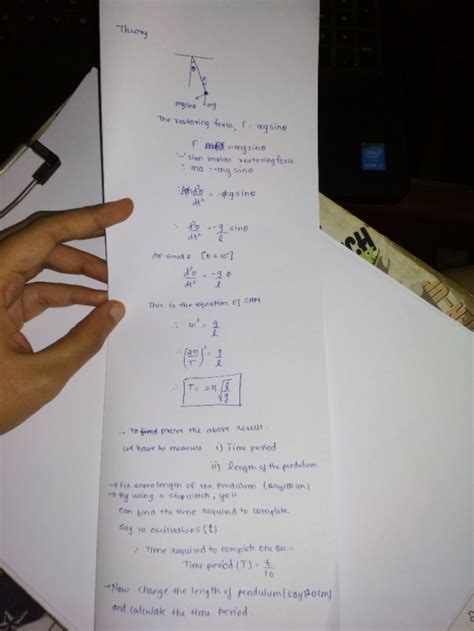 Theory
θ
l
mgsinθ mg
The restoring force, F = mgsinθ
F = -mgsinθ
'-' sign implies restoring force
∴ ma = -mgsinθ
∴ ml d²θ/dt² = -mg sinθ
∴ d²θ/dt² = -g/l sinθ
for small θ [θ ≤ 10°]
d²θ/dt² = -g/l θ
This is the equation of SHM
∴ ω² = g/l
∴ (2π/T)² = g/l
∴ T = 2π√(l/g)
∴ To find prove the above result
we have to measure i) Time period
ii) length of the pendulum
→ Fix some length of the pendulum (say 100cm)
→ By using a stopwatch, you
can find the time required to complete
say 10 oscillations (t)
∴ Time required to complete one osc =
Time period (T) = t/10
→ Now change the length of pendulum (say 120cm)
and calculate the time period.
intel